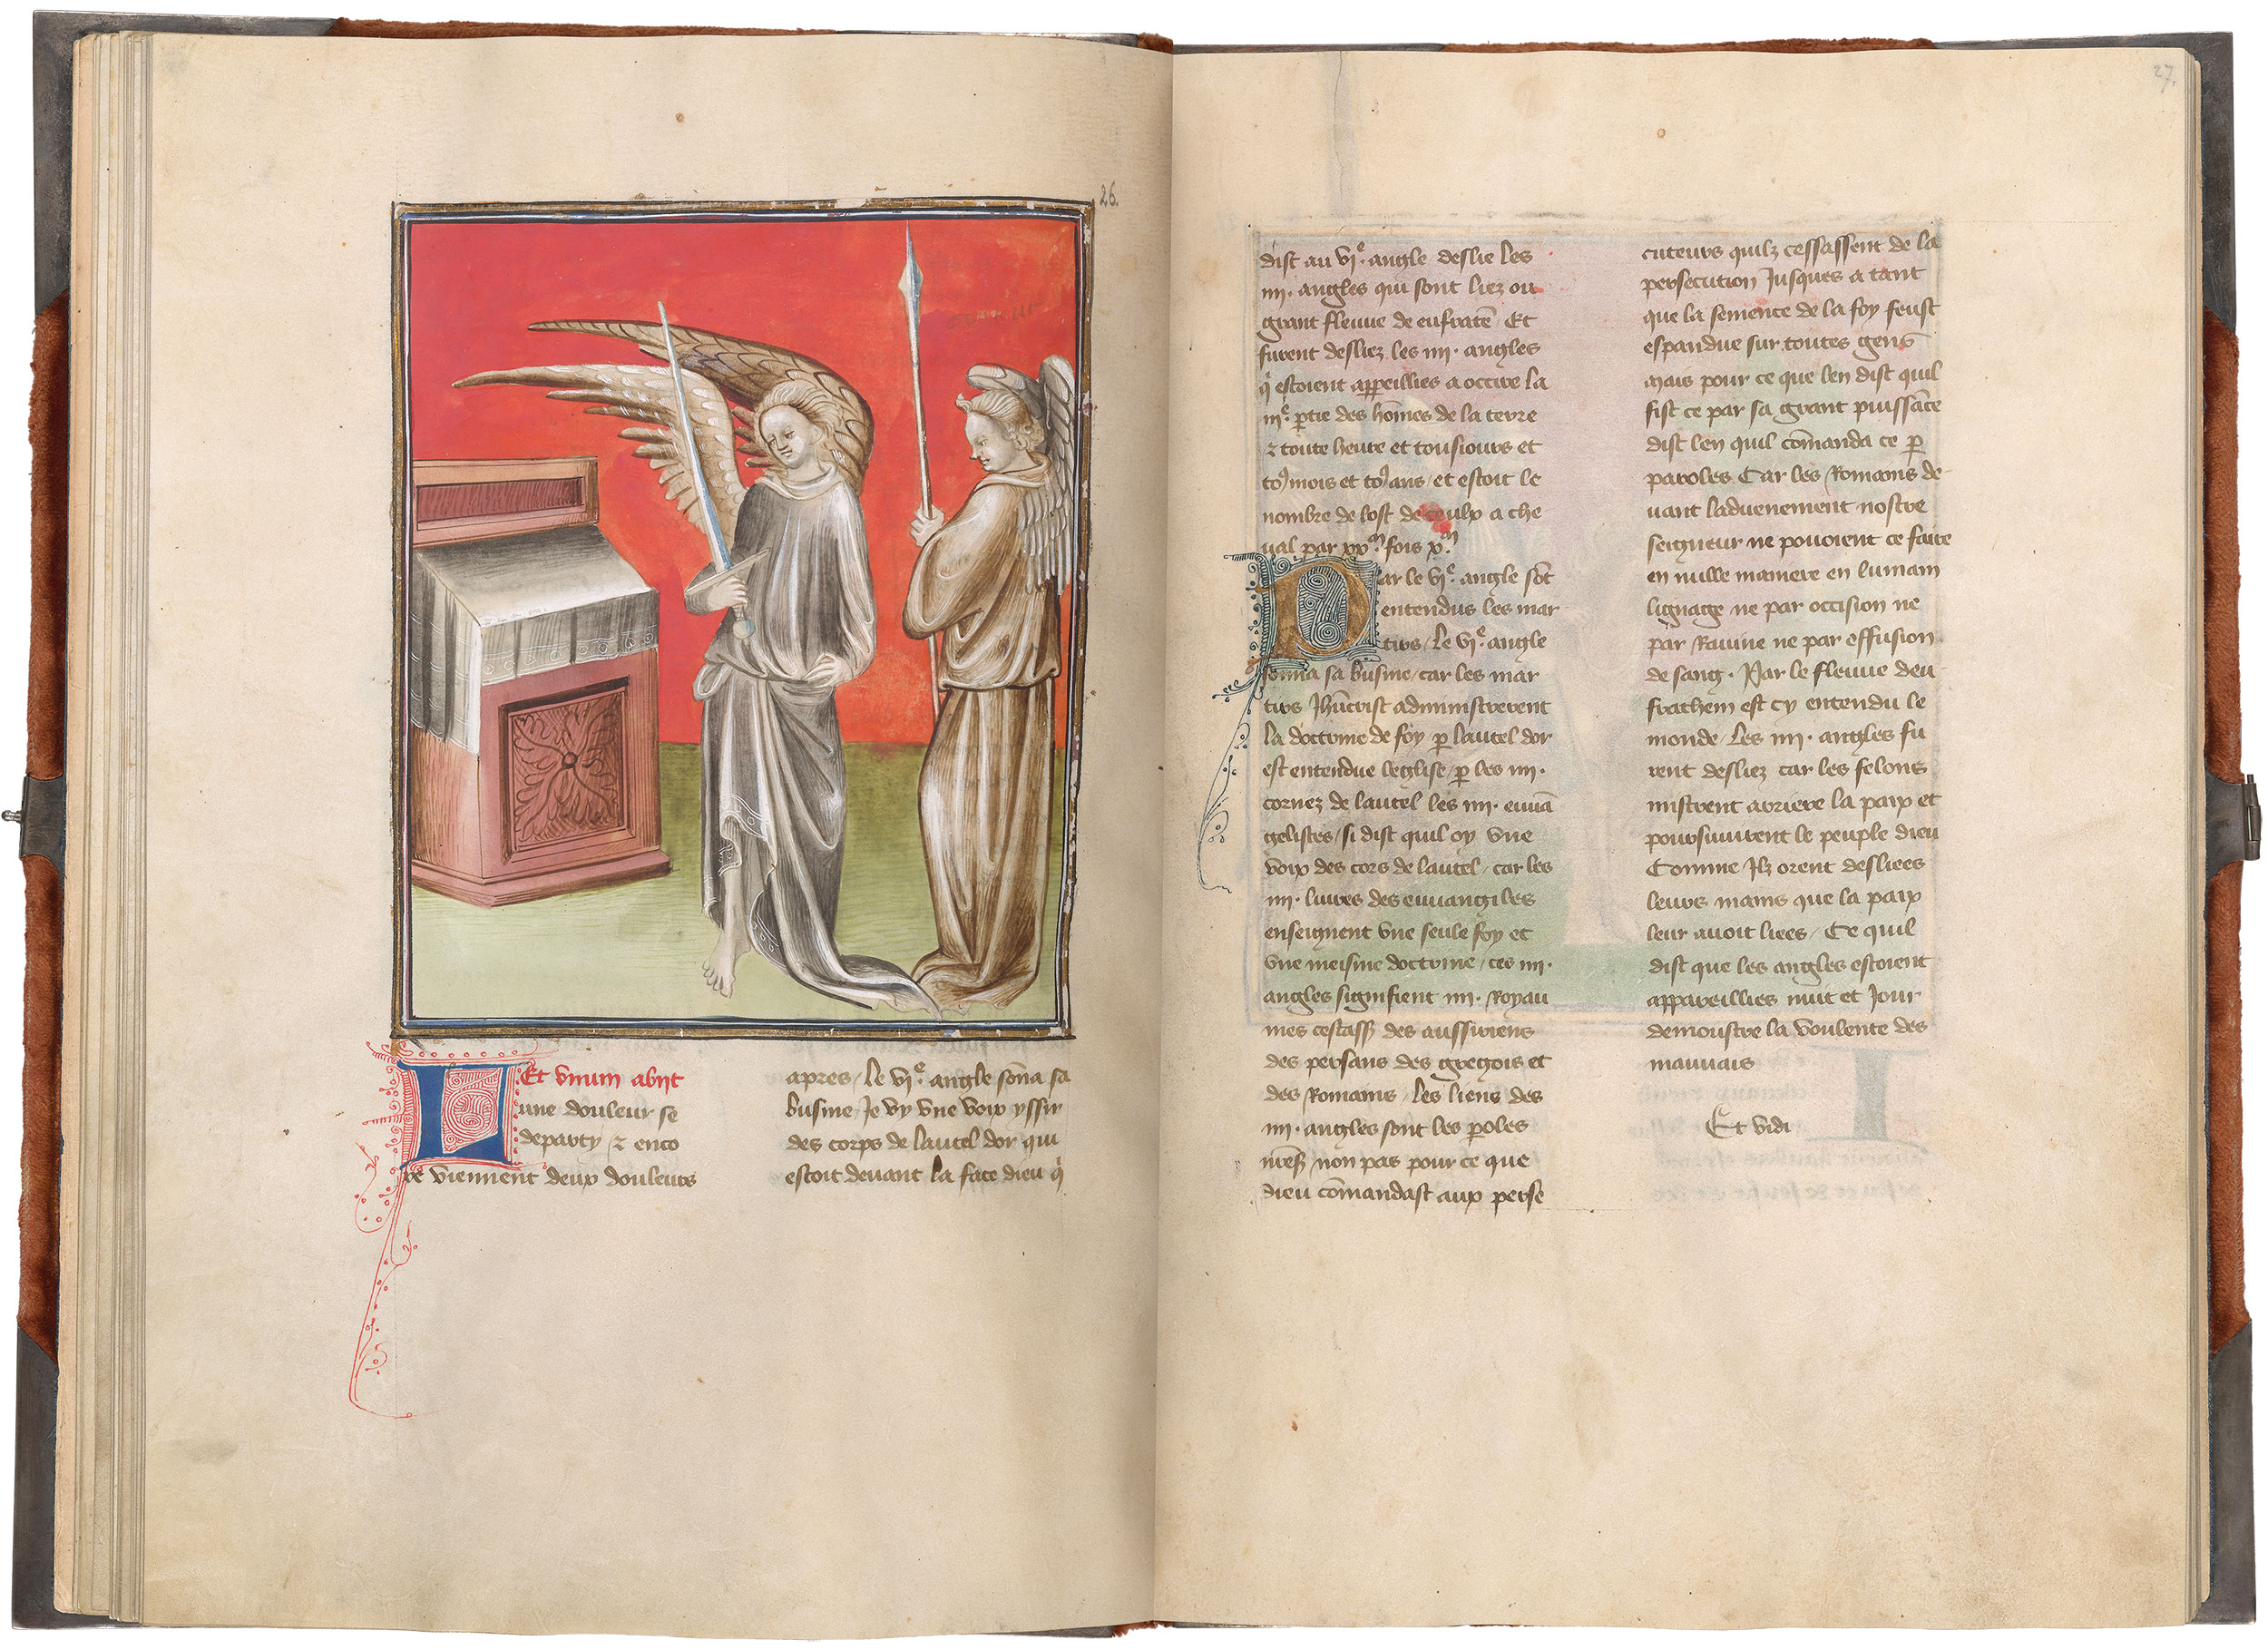 26.
Et vnum abijt
une douleur se
departy / ⁊ enco
re viennent deux douleurs
apres / Le vj.e angle sõna sa
busine Je vy vne voix yssir
des corps de lautel dor qui
estoit deuant la face dieu q̃
27.
dist au vj.e angle deslie les
iiij. angles qui sont liez ou
grant fleuue de eufraten̄ Et
furent desliez les iiij. angles
q̃ estoient apeillies a occire la
iij.e ptie des hões de la terre
⁊ toute heure et tousiours et
to9 mois et to9 ans / et estoit le
nombre de lost de ceulx a che
ual par xx.m fois x.m
Par le vj.e angle sõt
entendus les mar
tirs / Le vj.e angle
sonna sa busine / car les mar
tirs Jhũcrist administrerent
la doctrine de foy p lautel dor
est entendue leglise / p les iiij.
cornez de lautel les iiij. euuã
gelistes / si dist quil oy vne
voix des cors de lautel / car les
iiij. liures des euuangiles
enseignent vne seule foy et
vne meisme doctrine / ces iiij.
angles signifient iiij. Royau
mes cestass des assiriens
des persans des gregois et
des Romains / Les liens des
iiij. angles sont les poles
mes̃ / non pas pour ce que
dieu cõmandast aux perse
cuteurs quilz cessassent de la
persecution Jusques a tant
que la semence de la foy feust
espandue sur toutes gens
Mais pour ce que len dist quil
fist ce par sa grant puissãce
dist len quil cõmanda ce p
paroles Car les Romains de
uant laduenement nostre
seigneur ne pouoient ce faire
en nulle maniere en lumain
lignage ne par occision ne
par Rauine ne par effusion
de sang. Par le fleuue deu
frathem est cy entendu le
monde / Les iiij. angles fu
rent desliez car les felons
mistrent arriere la paix et
poursuiuirent le peuple dieu
Comme Jlz orent desliees
leurs mains que la paix
leur auoit liees / Ce quil
dist que les angles estoient
appareillies nuit et Jour
demoustre la voulente des
mauuais
Et vidi